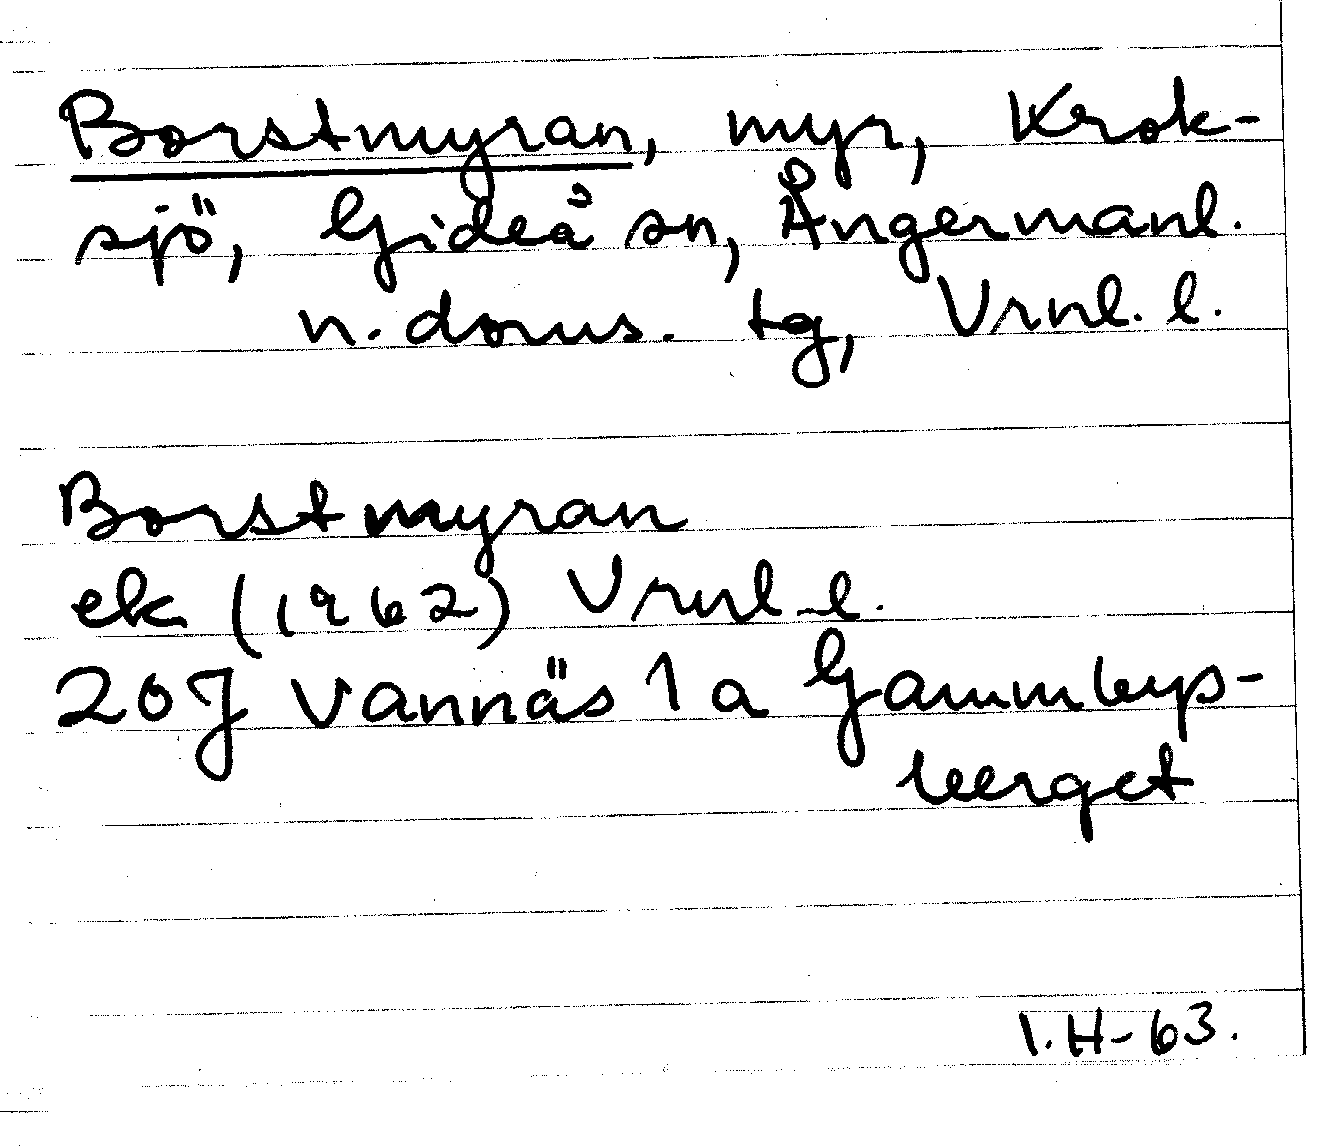 Borstmyran, myr, Krok-
sjö, Gideå sn, Ångermanl.
n. doms. tg, Vrnl. l.
Borstmyran
ek (1962) Vrnl l.
20J Vännäs 1 a Gammbyps-
berget
I.H-63.